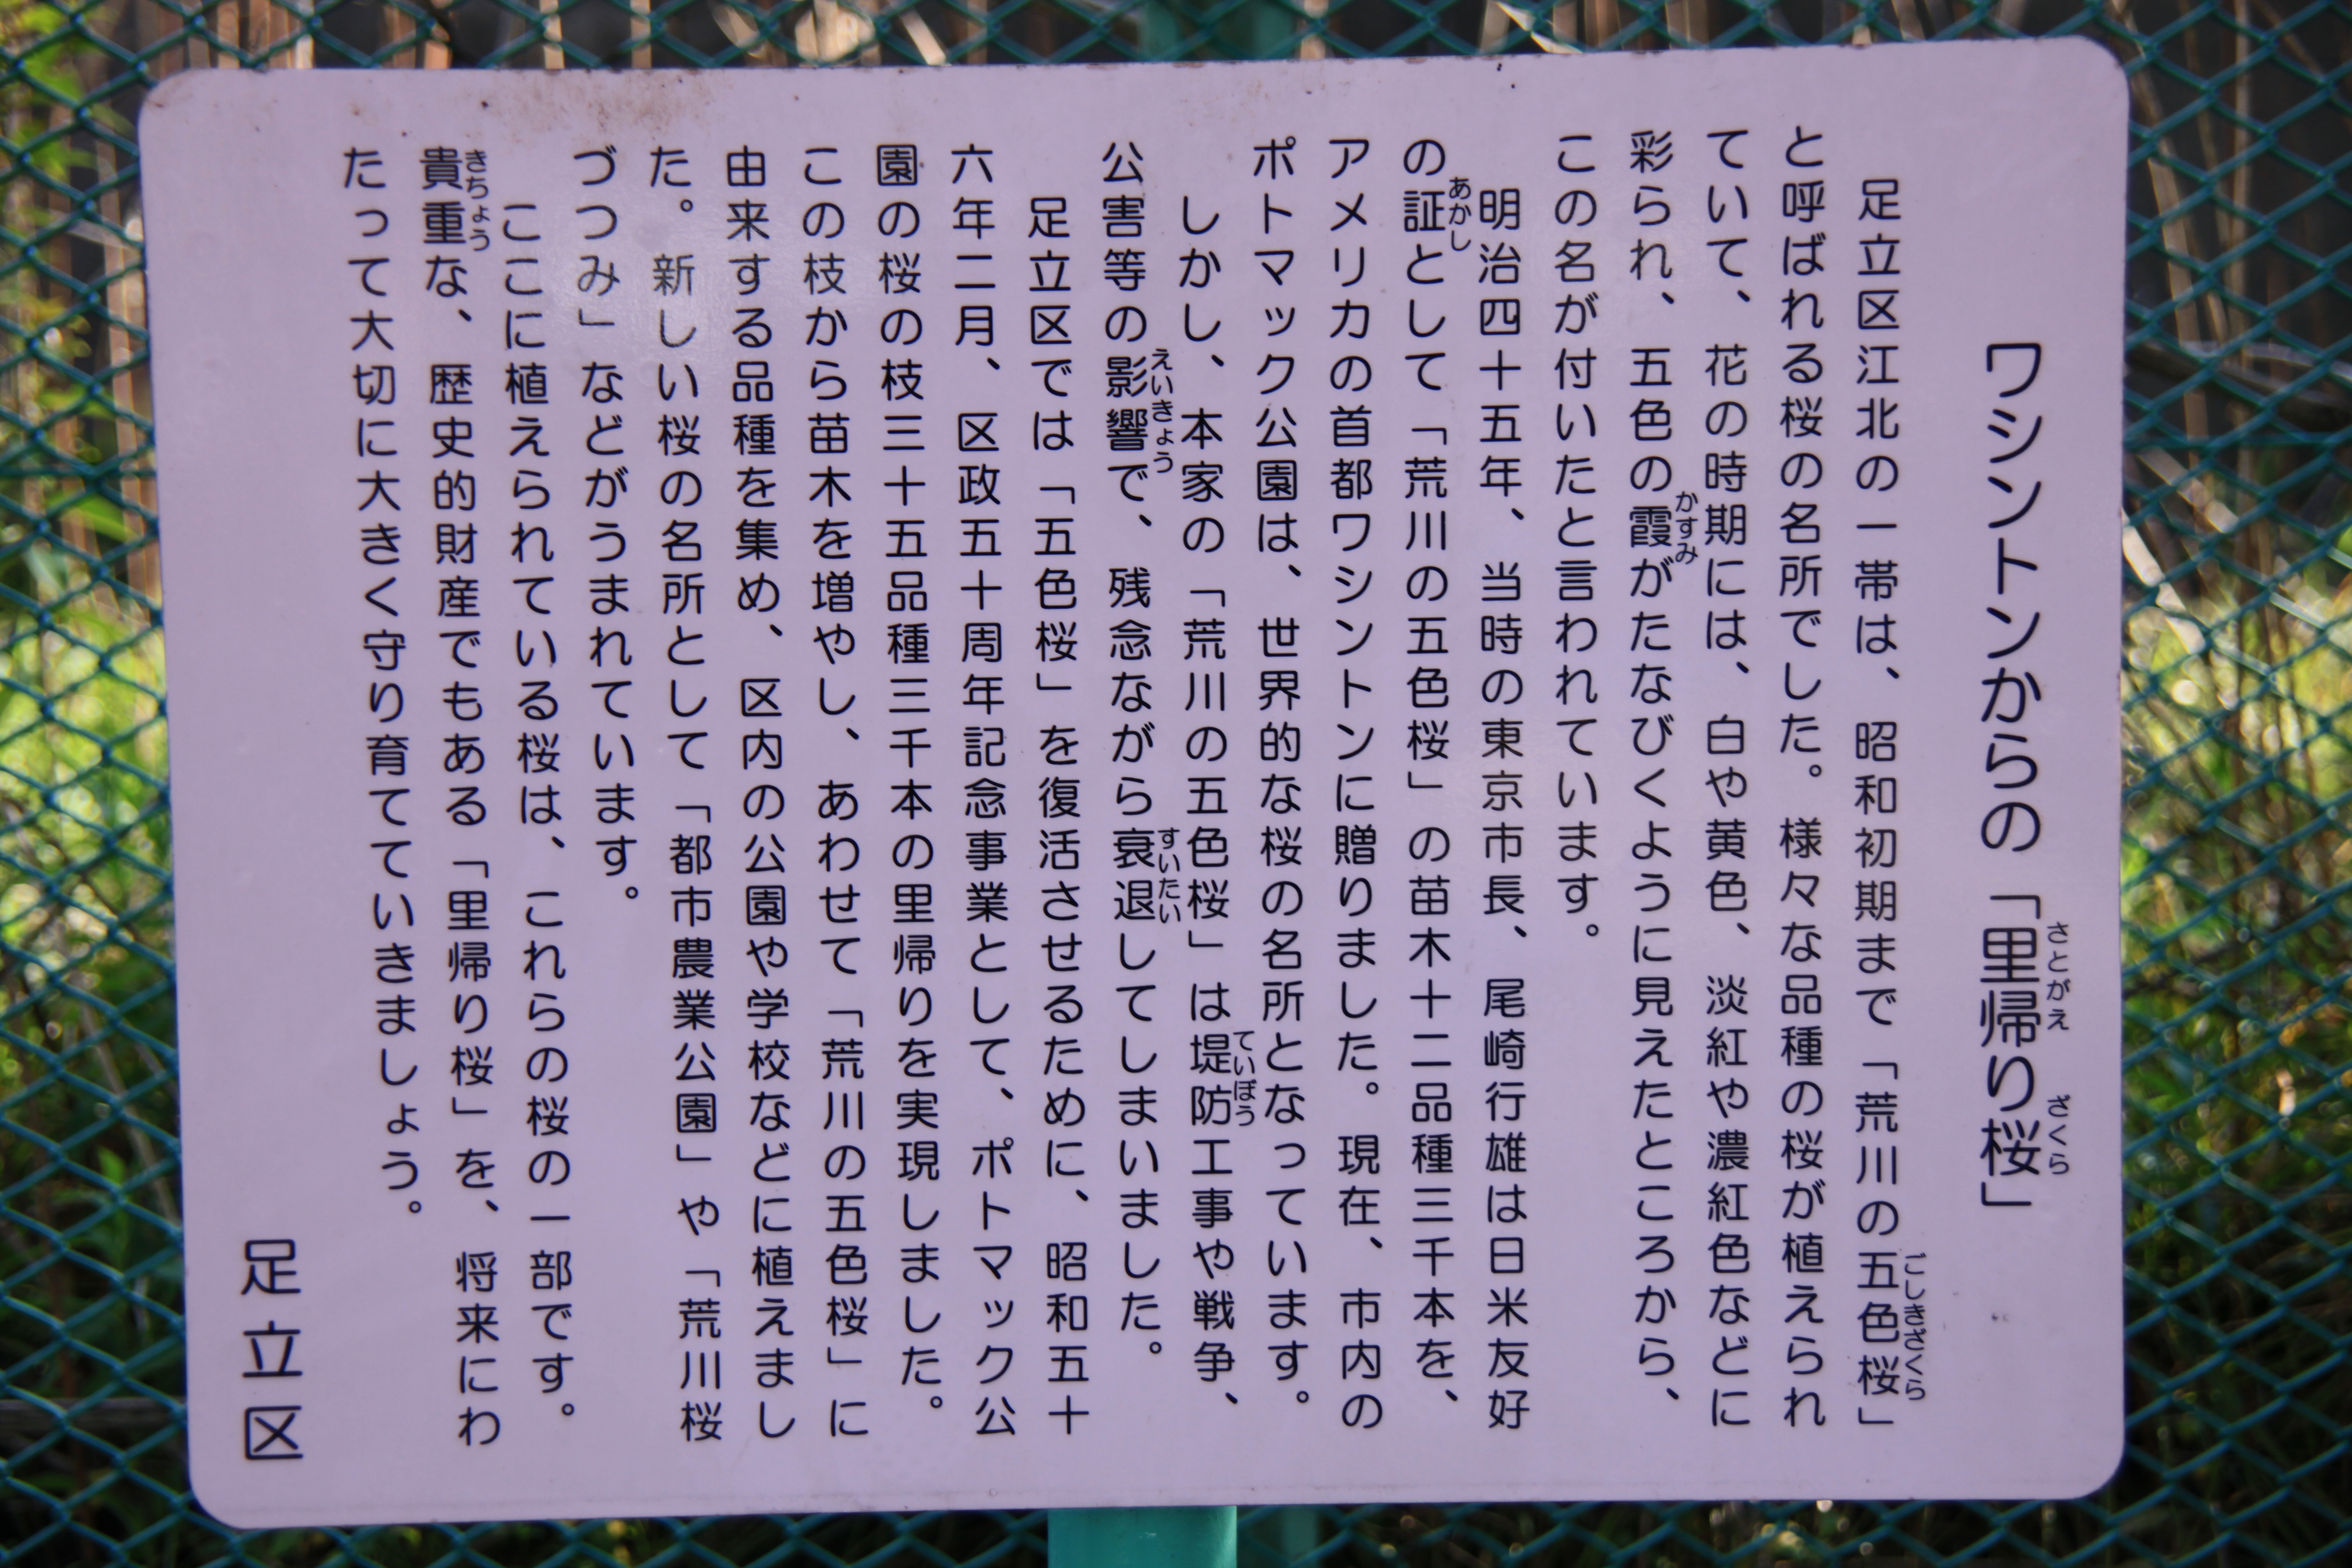 ワシントンからの「里帰り桜」
足立区江北の一帯は、昭和初期まで「荒川の五色桜」
と呼ばれる桜の名所でした。様々な品種の桜が植えられ
ていて、花の時期には、白や黄色、淡紅や濃紅色などに
彩られ、五色の霞がたなびくように見えたところから、
この名が付いたと言われています。
明治四十五年、当時の東京市長、尾崎行雄は日米友好
の証として「荒川の五色桜」の苗木十二品種三千本を、
アメリカの首都ワシントンに贈りました。現在、市内の
ポトマック公園は、世界的な桜の名所となっています。
しかし、本家の「荒川の五色桜」は堤防工事や戦争、
公害等の影響で、残念ながら衰退してしまいました。
足立区では「五色桜」を復活させるために、昭和五十
六年二月、区政五十周年記念事業として、ポトマック公
園の桜の枝三十五品種三千本の里帰りを実現しました。
この枝から苗木を増やし、あわせて「荒川の五色桜」に
由来する品種を集め、区内の公園や学校などに植えまし
た。新しい桜の名所として「都市農業公園」や「荒川桜
づつみ」などがうまれています。
ここに植えられている桜は、これらの桜の一部です。
貴重な、歴史的財産でもある「里帰り桜」を、将来にわ
たって大切に大きく守り育てていきましょう。
足立区